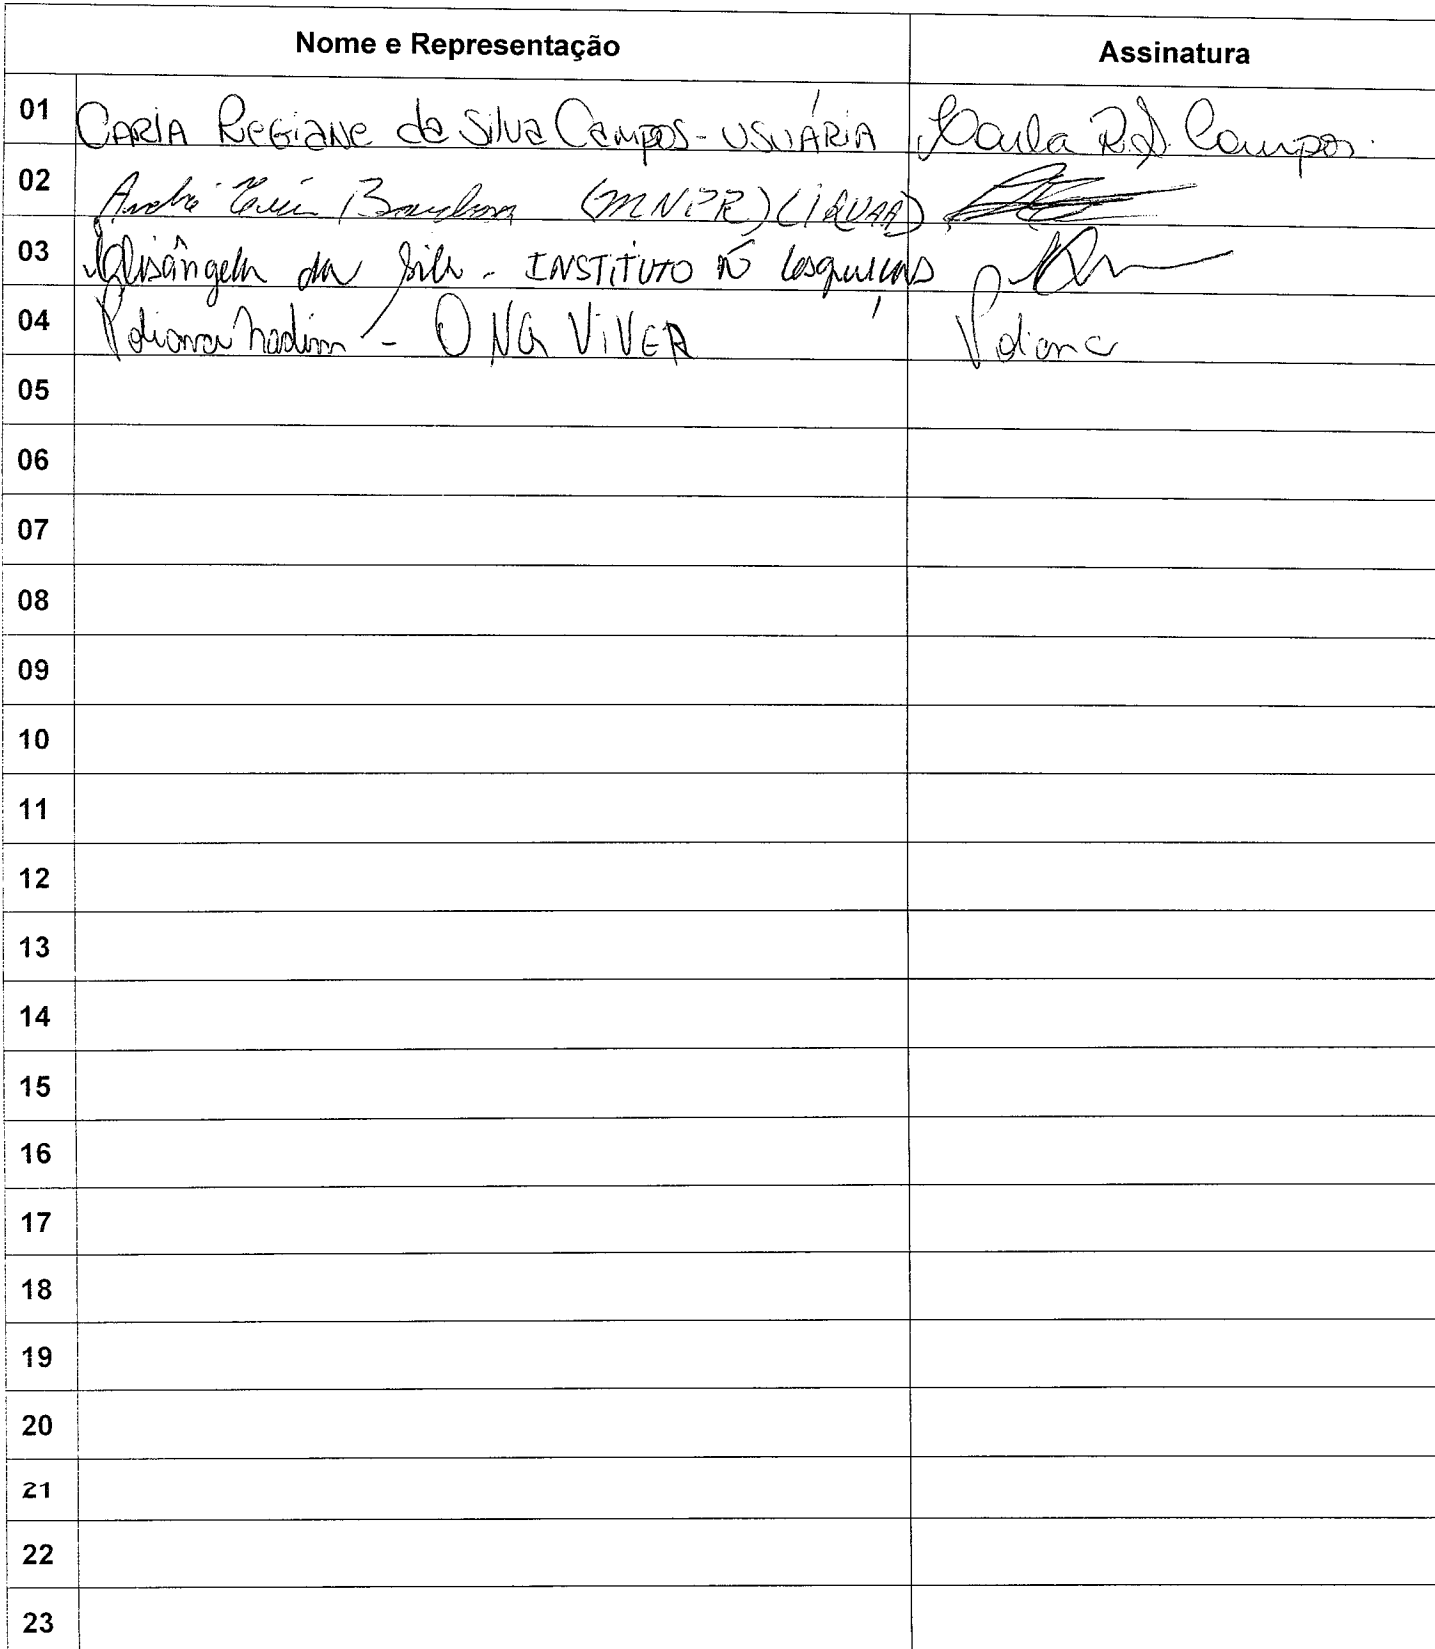 Nome e Representação Assinatura
01 CARLA REGIANE da Silva Campos - USUÁRIA Carla R.S. Campos.
02 André (MNPR)
03 Elisângela da Silva - INSTITUTO
04 Poliana - ONG VIVER Poliana
05
06
07
08
09
10
11
12
13
14
15
16
17
18
19
20
21
22
23